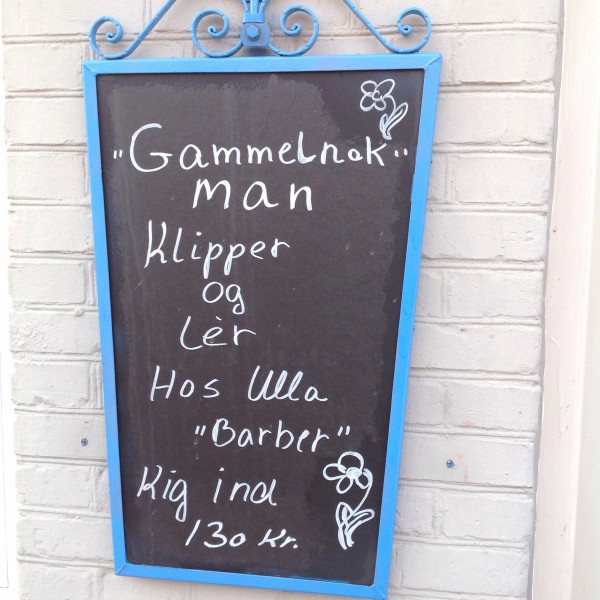 "Gammelnok"
man
Klipper
og
Lèr
Hos Ulla
"Barber"
Kig ind
130 Kr.